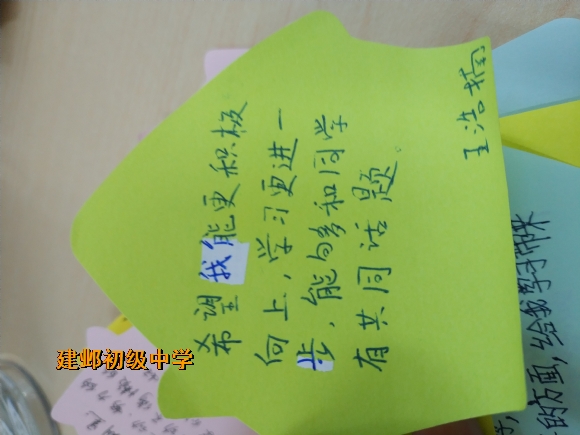 希望我能更积极
向上，学习更进一
步，能够多和同学
有共同话题。
王浩楠
的方面，给我学习带来
建邺初级中学